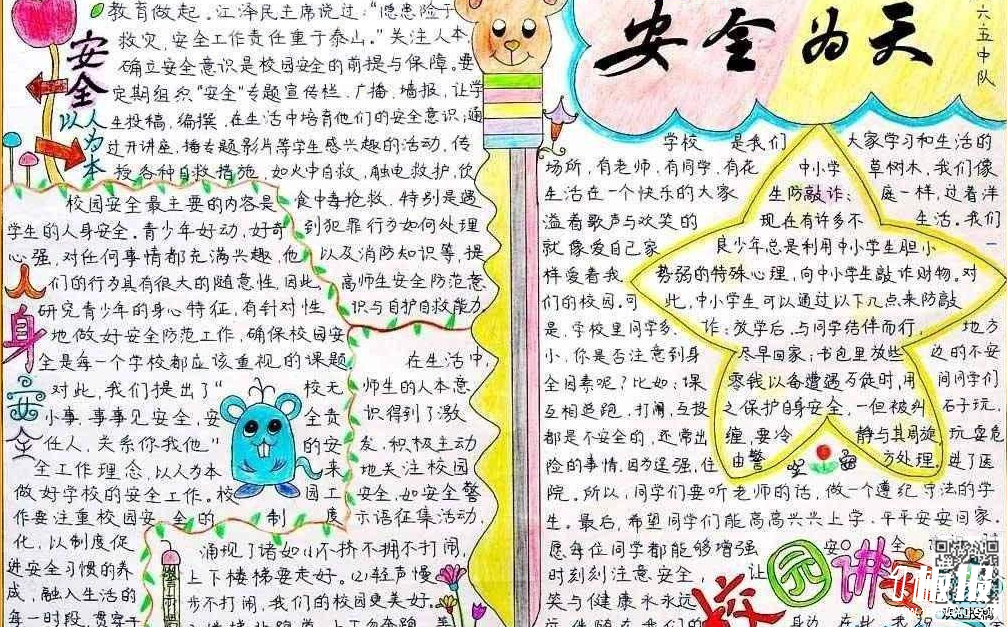 安全为天
六五中队
安全
以人为本
教育做起。江泽民主席说过：“隐患险于
救灾，安全工作责任重于泰山。”关注人本
确立安全意识是校园安全的前提与保障。要
定期组织“安全”专题宣传栏，广播，墙报，让学
生投稿，编撰，在生活中培育他们的安全意识，通
过开讲座，播专题影片等学生感兴趣的活动，传
授各种自救措施，如火中自救，触电救护，饮
食中毒抢救，特别是遇
到犯罪行为如何处理
以及消防知识等，提
高师生安全防范意
识与自护自救能力
人身安全
校园安全最主要的内容是
学生的人身安全。青少年好动，好奇
心强，对任何事情都充满兴趣，他
们的行为具有很大的随意性，因此，
研究青少年的身心特征，有针对性
地做好安全防范工作，确保校园安
全是每一个学校都应该重视的课题
对此，我们提出了“校无
小事，事事见安全，安全责
任人，关系你我他”的安
全工作理念，以人为本来
做好学校的安全工作。校园工
作要注重校园安全的制度
化，以制度促
进安全习惯的养
成，融入生活的
每一时段，贯穿于
在生活中，
师生的人本意
识得到了激
发，积极主动
地关注校园
安全，如安全警
示语征集活动，
涌现了诸如(1)不挤不拥不打闹，
上下楼梯要走好。(2)轻声慢
步不打闹，我们的校园更美好。
学校是我们大家学习和生活的
场所，有老师，有同学，有花草树木，我们像
生活在一个快乐的大家庭一样，过着洋
溢着歌声与欢笑的生活。我们
就像爱自己家一
样爱着我
们的校园，可
是，学校里同学多，地方
小，你是否注意到身边的不安
全因素呢？比如：课间同学们
互相追跑，打闹，互投石子玩，
都是不安全的，还常出玩耍危
险的事情，因为逞强，住进了医
院。所以，同学们要听老师的话，做一个遵纪守法的学
生。最后，希望同学们能高高兴兴上学，平平安安回家，
愿每位同学都能够增强安全
时刻刻注意安全，让
笑与健康永永远
远伴随在我们的身边，在我
中小学
生防敲诈：
现在有许多不
良少年总是利用中小学生胆小
势弱的特殊心理，向中小学生敲诈财物。对
此，中小学生可以通过以下几点来防敲
诈：放学后，与同学结伴而行，
尽早回家；书包里放些
零钱以备遭遇歹徒时，用
之保护自身安全，一但被纠
缠，要冷静与其周旋，
由警方处理。
校园讲